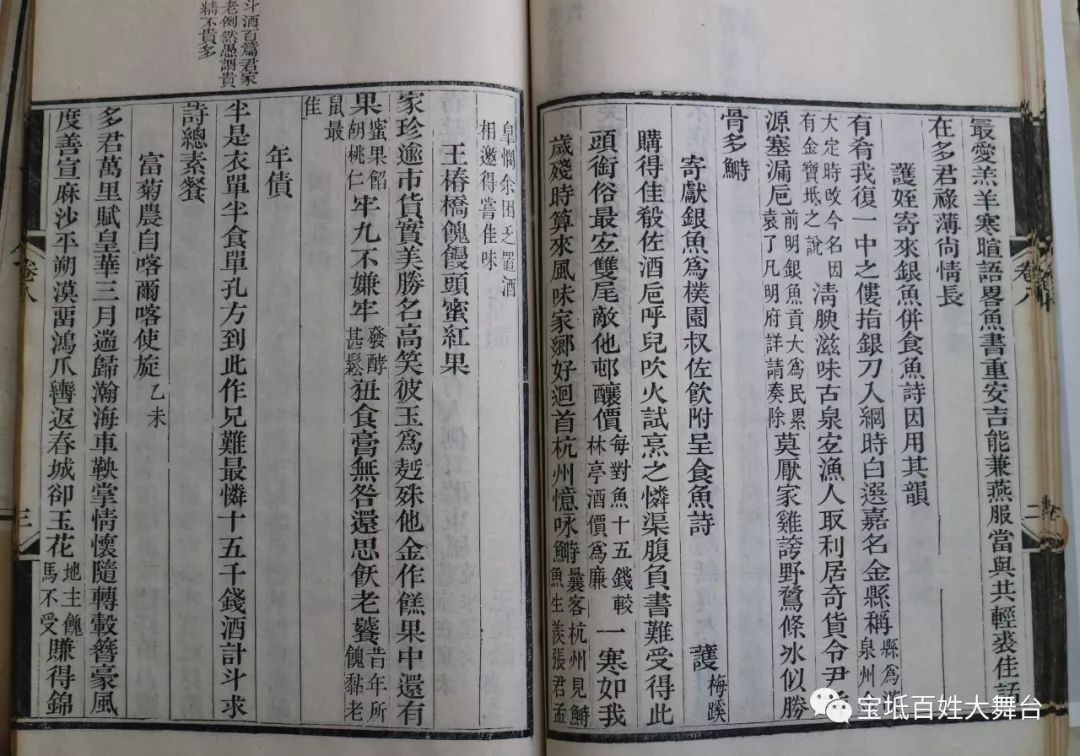 最愛羔羊寒暄語畧魚書重安吉能兼燕服當與共輕裘佳話
在多君祿薄尚情長
護姪寄來銀魚併食魚詩因用其韻
有肴我復一中之僂指銀刀入網時白選嘉名金縣稱縣為泉州
大定時改今名因有金寶坻之說清腴滋味古泉宐漁人取利居奇貨令尹
源塞漏卮前明銀魚貢大為民累袁了凡明府詳請奏除莫厭家雞誇野鶩條冰似勝
骨多鰣
寄獻銀魚為樸園叔佐飲附呈食魚詩 護梅蹊
購得佳殽佐酒卮呼兒吹火試烹之憐渠腹負書難受得此
頭銜俗最宐雙尾敵他邨釀價每對魚十五錢較林亭酒價為廉一寒如我
歲殘時算來風味家鄉好迴首杭州憶咏鰣曩客杭州見鰣魚生羨張君孟
斗酒百篇君家
老例然愚謂貴
精不貴多
皐憫余困乏置酒
相邀得嘗佳味
王椿橋餽饅頭蜜紅果
家珍逾市貨實美勝名高笑彼玉為麪殊他金作餻果中還有
果蜜果餡胡桃仁牢九不嫌牢發酵甚鬆狃食嘗無咎還思飫老饕昔年所餽黏老
鼠最佳
年債
半是衣單半食單孔方到此作兄難最憐十五千錢酒計斗求
詩總素餐
富菊農自喀爾喀使旋乙未
多君萬里賦皇華三月遄歸瀚海車鞅掌情懷隨轉轂簪豪風
度善宣麻沙平朔漠畱鴻爪轡返春城卻玉花地主餽馬不受賺得錦
卷八
三
卷八
二
宝坻百姓大舞台